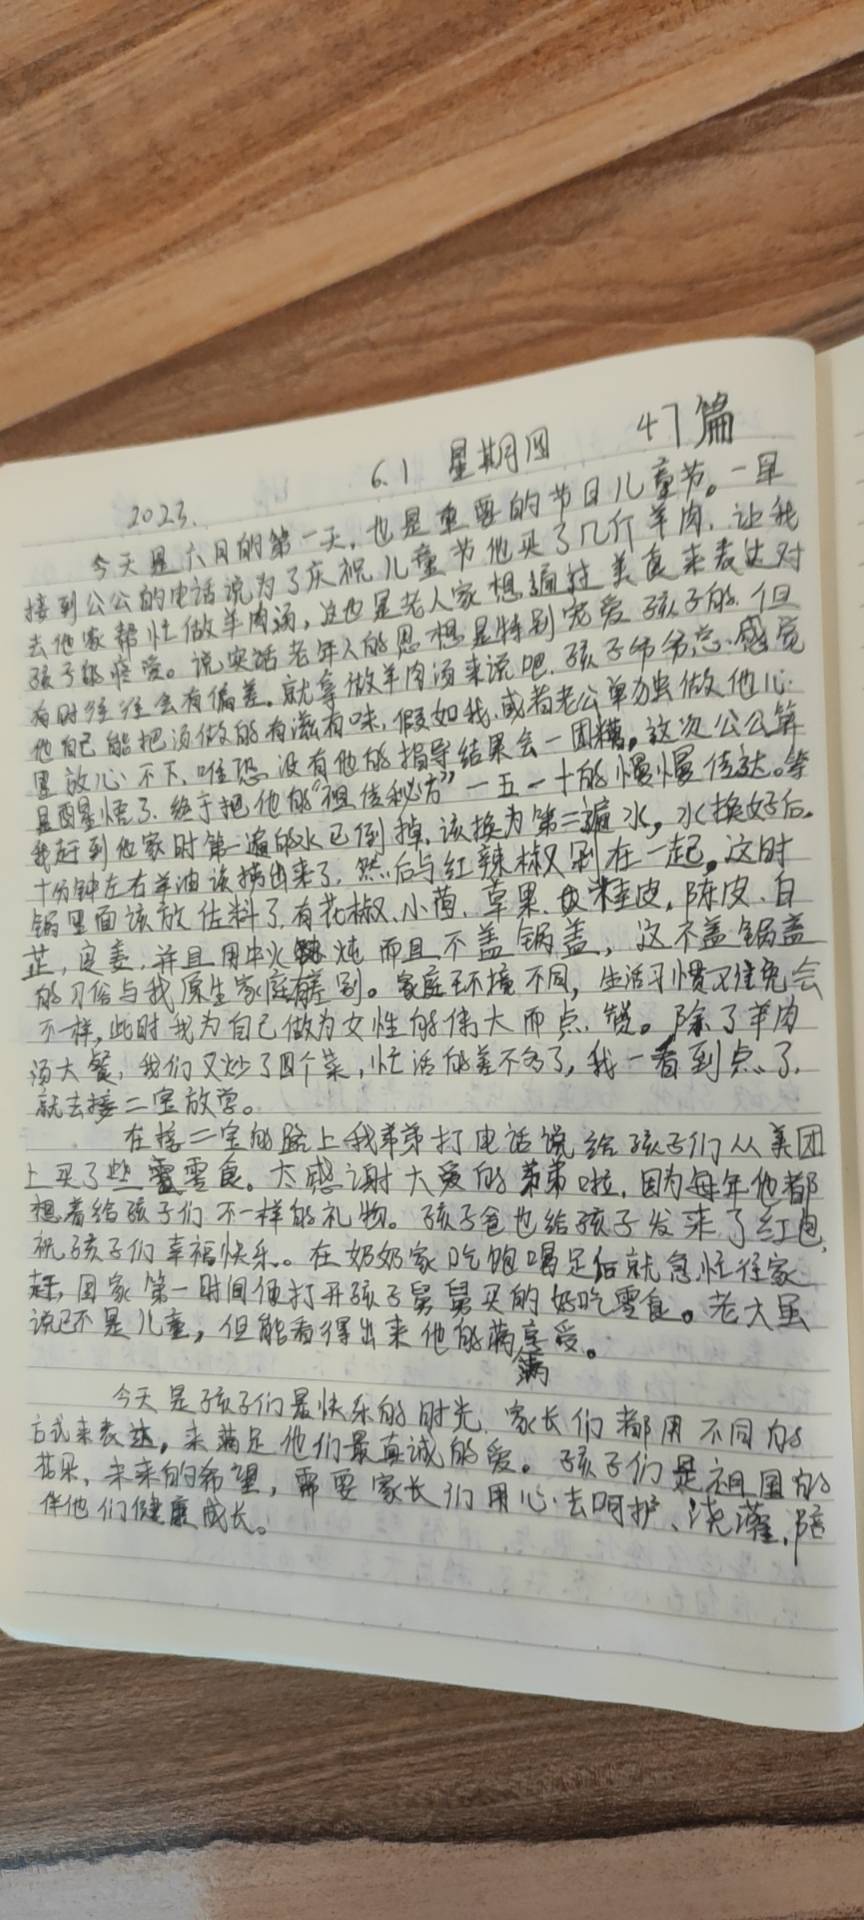 2023. 6.1 星期四 47篇
今天是六月的第一天,也是重要的节日儿童节。一早
接到公公的电话说为了庆祝儿童节他买了几斤羊肉,让我
去他家帮忙做羊肉汤,这也是老人家想通过美食来表达对
孩子的疼爱。说实话老年人的思想是特别宠爱孩子的,但
有时往往会有偏差。就拿做羊肉汤来说吧,孩子爷爷总感觉
他自己能把汤做的有滋有味,假如我、或者老公单独做他心
里放心不下,唯恐没有他的指导结果会一团糟。这次公公算
是醒悟了,终于把他的“祖传秘方”一五一十的慢慢传达。等
我赶到他家时第一遍的水已倒掉,该换为第二遍水,水换好后,
十分钟左右羊油该捞出来了,然后与红辣椒剁在一起。这时
锅里面该放佐料了,有花椒、小茴、草果、桂皮,陈皮、白
芷,良姜,并且用中火炖而且不盖锅盖,这不盖锅盖
的习俗与我原生家庭有差别。家庭环境不同,生活习惯又难免会
不一样,此时我为自己做为女性的伟大而点赞。除了羊肉
汤大餐,我们又炒了四个菜,忙活的差不多了,我一看到点了,
就去接二宝放学。
在接二宝的路上我弟弟打电话说给孩子们从美团
上买了些零食。太感谢大爱的弟弟啦,因为每年他都
想着给孩子们不一样的礼物。孩子爸也给孩子发来了红包,
祝孩子们幸福快乐。在奶奶家吃饱喝足后就急忙往家
赶,回家第一时间便打开孩子舅舅买的好吃零食。老大虽
说已不是儿童,但能看得出来他的满享受。
满
今天是孩子们最快乐的时光,家长们都用不同的
方式来表达,来满足他们最真诚的爱。孩子们是祖国的
花朵,未来的希望,需要家长们用心去呵护、浇灌,陪
伴他们健康成长。